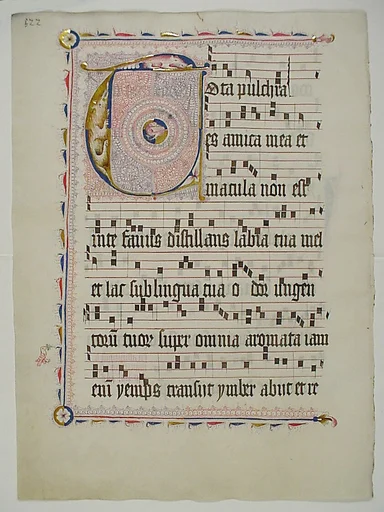 Tota pulchra
es amica mea et
macula non est
in te favus distillans labia tua mel
et lac sub lingua tua odor ungen
torū tuor super omnia aromata iam
enī yemps transiit ymber abiit et re